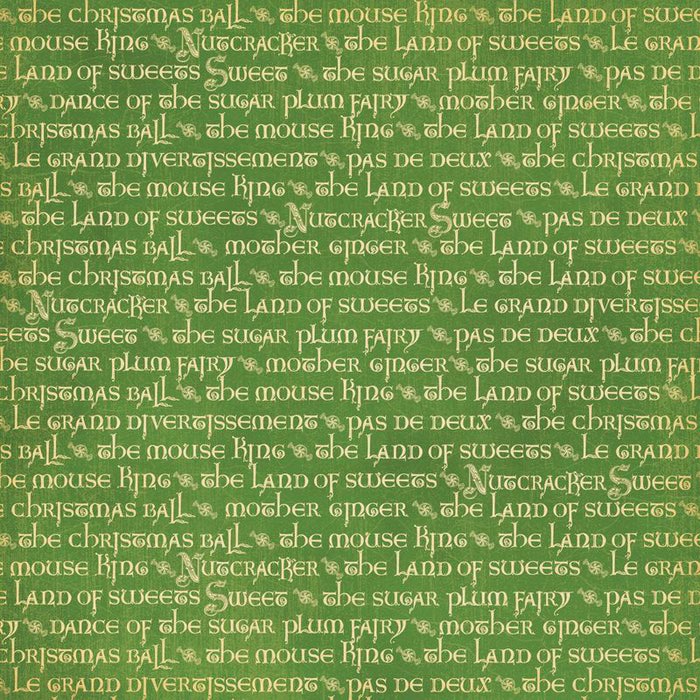 the Christmas Ball the Mouse King the Land of Sweets
Mouse King Nutcracker the Land of Sweets Le Grand
Land of Sweets Sweet the Sugar Plum Fairy Pas de
Dance of the Sugar Plum Fairy Mother Ginger the
Christmas Ball the Mouse King the Land of Sweets
Le Grand Divertissement Pas de Deux the Christmas
Ball the Mouse King the Land of Sweets Le Grand
the Land of Sweets Nutcracker Sweet Pas de Deux
Christmas Ball Mother Ginger the Land of Sweets
the Christmas Ball the Mouse King the Land of Sweets
Nutcracker the Land of Sweets Le Grand Divertisse
Sweet the Sugar Plum Fairy Pas de Deux the
he Sugar Plum Fairy Mother Ginger the Sugar Plum
Christmas Ball the Mouse King the Land of Sweets
Le Grand Divertissement Pas de Deux the Christmas
Ball the Mouse King the Land of Sweets Le Grand
he Mouse King the Land of Sweets Nutcracker Sweet
Christmas Ball Mother Ginger the Land of Sweets
the Christmas Ball the Mouse King the Land of Swee
Mouse King Nutcracker the Land of Sweets Le Gran
Land of Sweets Sweet the Sugar Plum Fairy Pas de
Dance of the Sugar Plum Fairy Mother Ginger the
Christmas Ball the Mouse King the Land of Sweets
Le Grand Divertissement Pas de Deux the Christmas